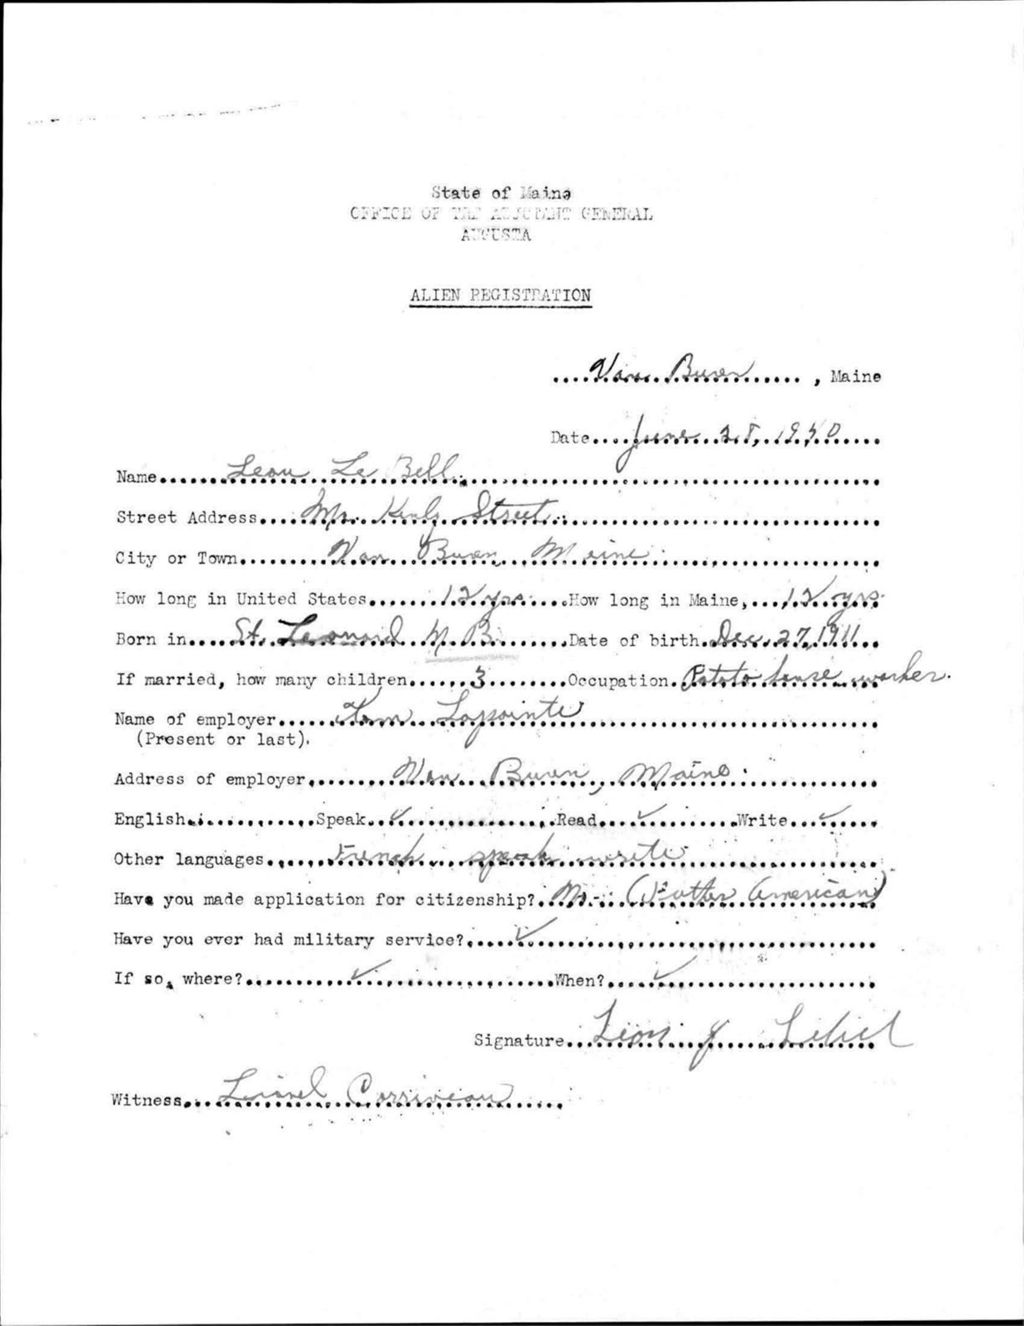 State of Maine
OFFICE OF THE ADJUTANT GENERAL
AUGUSTA
ALIEN REGISTRATION
Van Buren, Maine
Date June 28, 1940
Name Leon Le Bell
Street Address Mc Kinly Street
City or Town Van Buren, Maine
How long in United States 12 yrs How long in Maine, 12 yrs
Born in St. Leonard N.B. Date of birth Dec 27, 1911
If married, how many children 3 Occupation Potato house worker
Name of employer Lapointe
(Present or last).
Address of employer Van Buren, Maine
English Speak ✓ Read ✓ Write ✓
Other languages French speak write
Have you made application for citizenship? No - (Father American)
Have you ever had military service? ✓
If so, where? ✓ When? ✓
Signature Leon J Lebel
Witness Lionel Corriveau